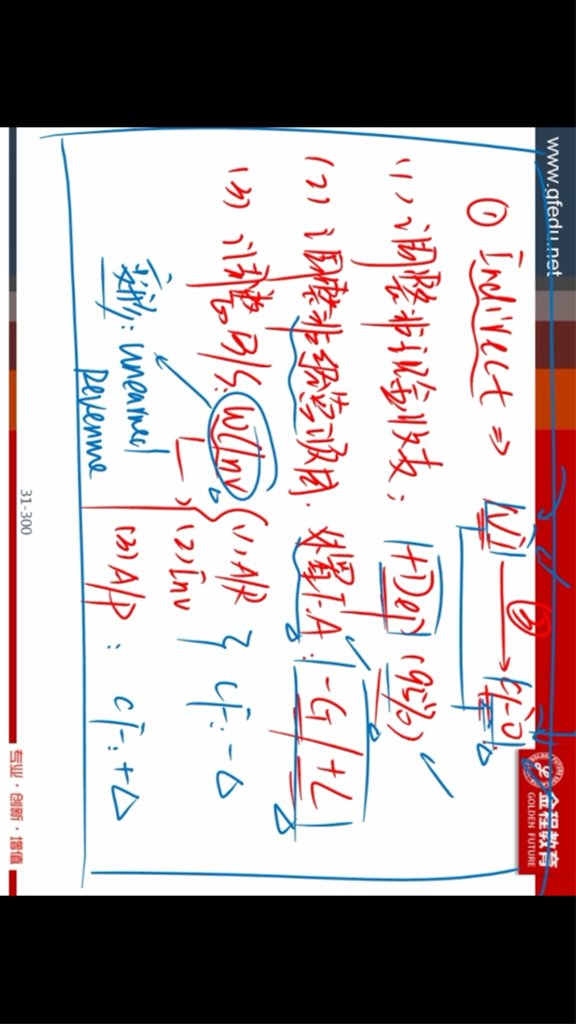 www.gfedu.net
① Indirect ⇒ NI → CFO
③
(1) 调整非现金收支: +Dep (95%)
(2) 调整非经营项目. 处置F.A: -G/+L
(3) 调整B/S: W/Inv { (1) A/R
(2) Inv } CF: -Δ
(3) A/P: CF: +Δ
变形: Unearned
Revenue
金程教育
GOLDEN FUTURE
31-300
专业·创新·增值